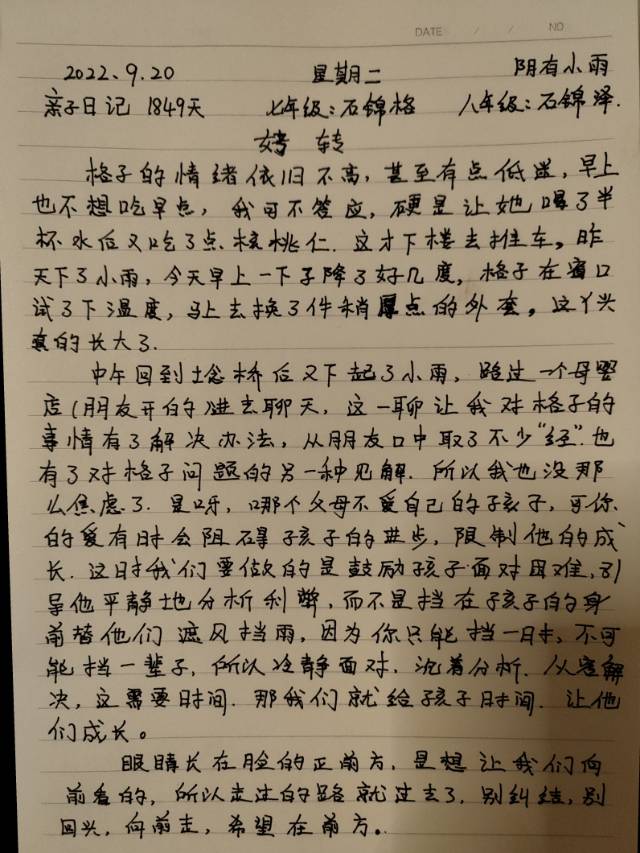 DATE / / NO
2022.9.20 星期二 阴有小雨
亲子日记 1849天 七年级:石锦格 八年级:石锦泽.
好转
格子的情绪依旧不高,甚至有点低迷,早上
也不想吃早点,我可不答应,硬是让她喝了半
杯水后又吃了点核桃仁.这才下楼去推车。昨
天下了小雨,今天早上一下子降了好几度,格子在窗口
试了下温度,马上去换了件稍厚点的外套。这丫头
真的长大了.
中午回到埝桥后又下起了小雨,路过一个母婴
店(朋友开的)进去聊天,这一聊让我对格子的
事情有了解决办法,从朋友口中取了不少“经”.也
有了对格子问题的另一种见解.所以我也没那
么焦虑了.是呀,哪个父母不爱自己的孩子,可你
的爱有时会阻碍孩子的进步,限制他的成
长.这时我们要做的是鼓励孩子面对困难,引
导他平静地分析利弊,而不是挡在孩子的身
前替他们遮风挡雨,因为你只能挡一时,不可
能挡一辈子,所以冷静面对.沉着分析.从容解
决,这需要时间.那我们就给孩子时间.让他
们成长。
眼睛长在脸的正前方,是想让我们向
前看的,所以走过的路就过去了,别纠结,别
回头,向前走,希望在前方。